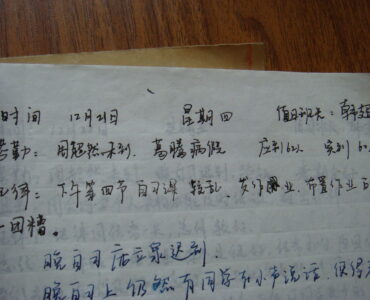 时间 12月21日 星期四 值日班长：韩
考勤：周超然未到，葛腾病假 应到62人 实到6
下午第四节自习课较乱，发作业，布置作业
一团糟。
晚自习 迟到.
晚自习上仍然有同学在小声说话，但